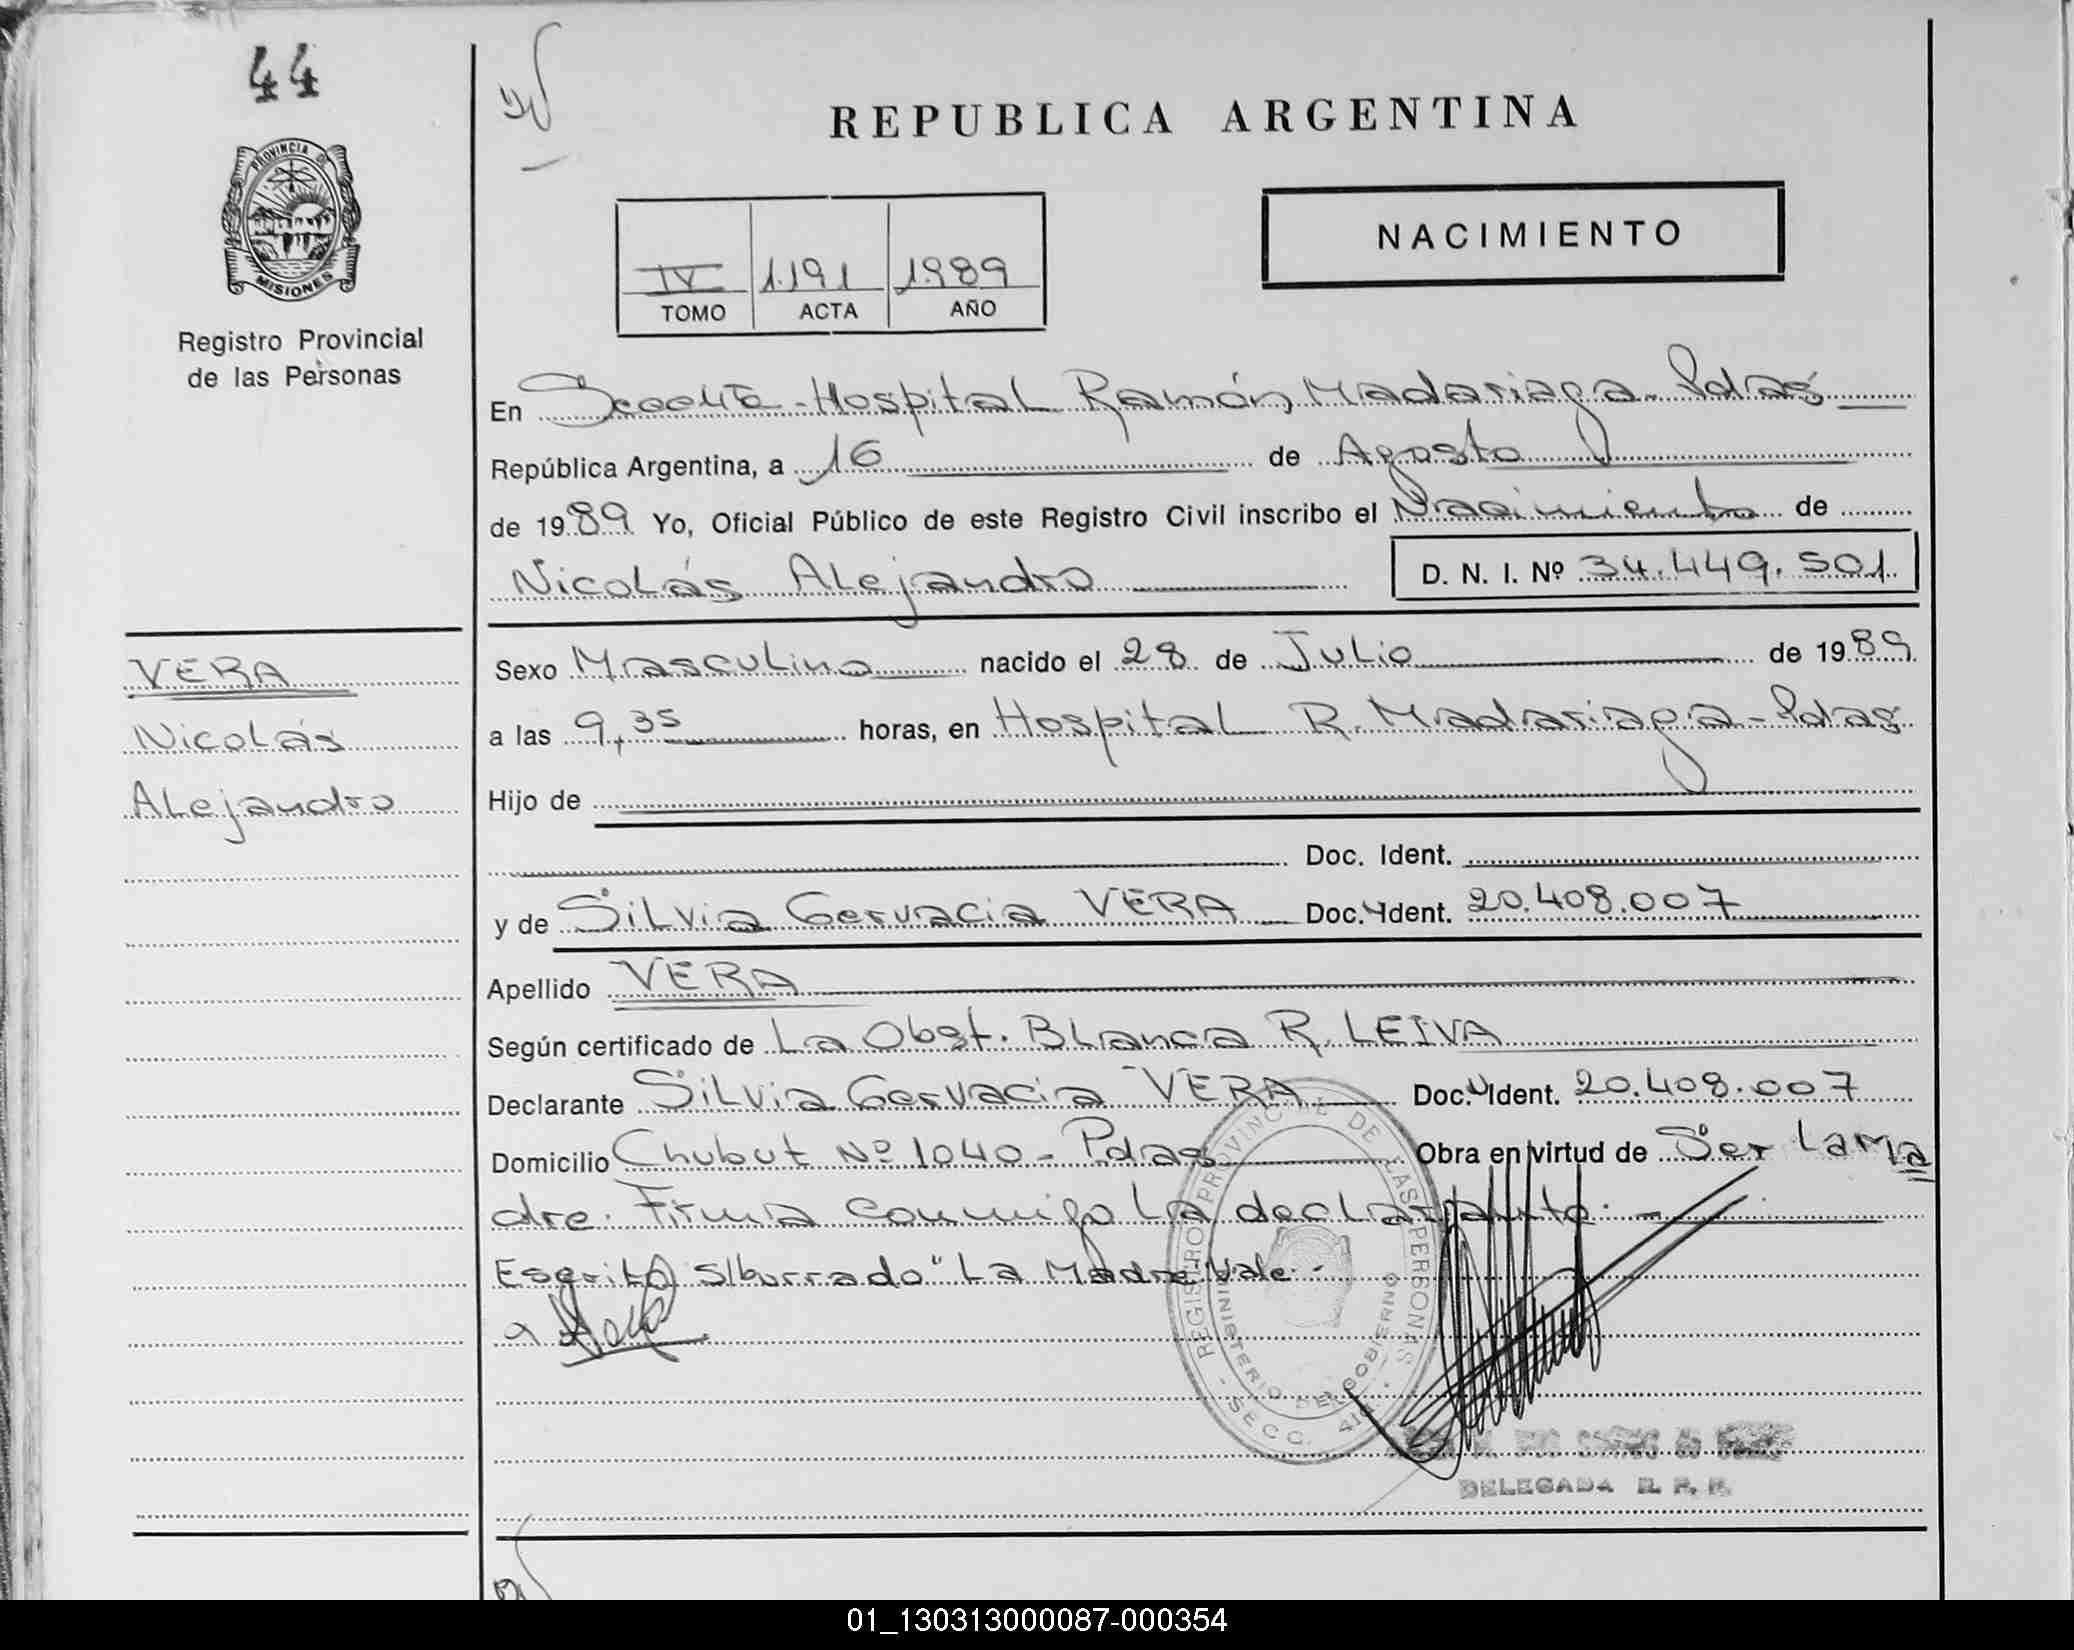 44
REPUBLICA ARGENTINA
PROVINCIA DE
MISIONES
Registro Provincial
de las Personas
NACIMIENTO
IV 1.191 1989
TOMO ACTA AÑO
En Hospital Ramón Madariaga - Pdas
República Argentina, a 16 de Agosto
de 1989 Yo, Oficial Público de este Registro Civil inscribo el Nacimiento de
Nicolás Alejandro D. N. I. Nº 34.449.501
VERA
Nicolás
Alejandro
Sexo Masculino nacido el 28 de Julio de 1989
a las 9,35 horas, en Hospital R. Madariaga - Pdas
Hijo de
Doc. Ident.
y de Silvia Gervacia VERA Doc. Ident. 20.408.007
Apellido VERA
Según certificado de La Obst. Blanca R. LEIVA
Declarante Silvia Gervacia VERA Doc. Ident. 20.408.007
Domicilio Chubut Nº 1040 - Pdas Obra en virtud de Ser La Ma
dre. Firma conmigo La declarante. -
Escrito s/borrado "La Madre Vale. -
REGISTRO PROVINCIAL DE LAS PERSONAS
MINISTERIO DE GOBIERNO
- SECC. 4ta. -
DELEGADA R. P. P.
01_130313000087-000354